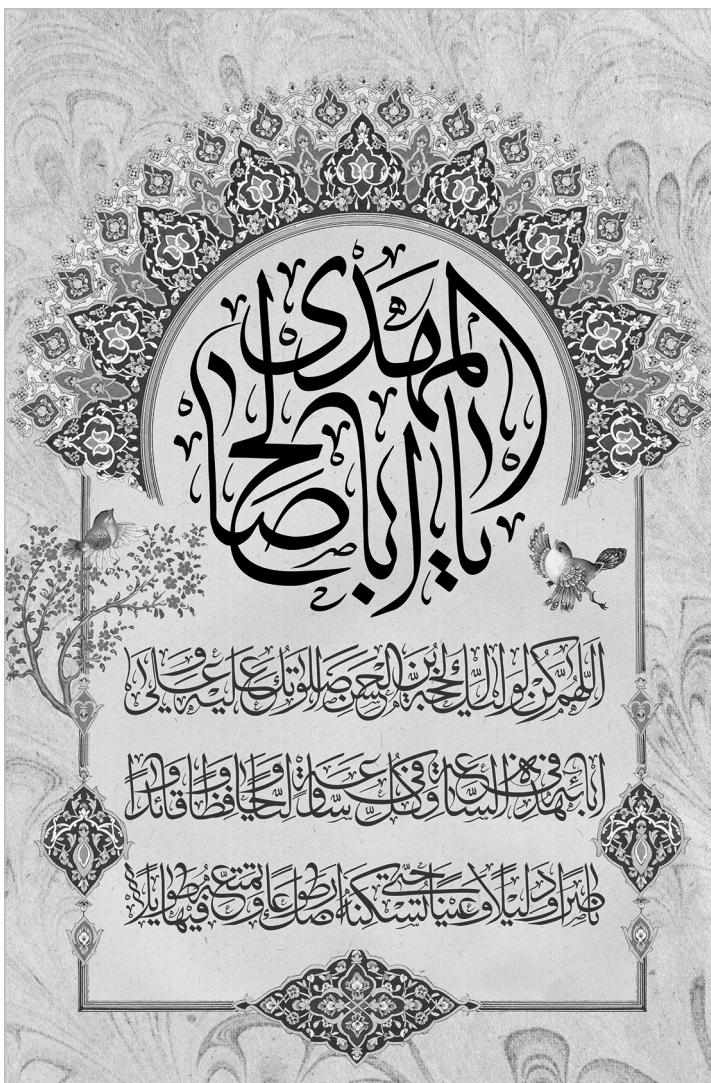 یا اباصالح
المهدی
اللهم کن لولیک الحجة بن الحسن صلواتک علیه و علی
آبائه فی هذه الساعة و فی کل ساعة ولیا و حافظا و قائدا
و ناصرا و دلیلا و عینا حتی تسکنه ارضک طوعا و تمتعه فیها طویلا